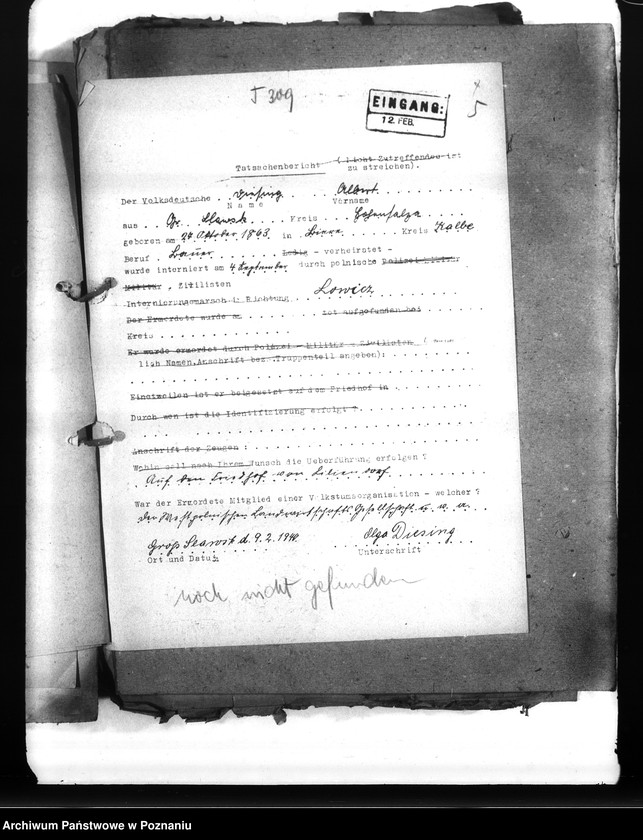 J 309
5
EINGANG:
12. FEB.
Tatsachenbericht (Nicht Zutreffendes ist
zu streichen).
Der Volksdeutsche . . Diesing . . . Albert . . . . . . .
Name Vorname
aus . . Gr. Slawsk . . . . Kreis . . . Hohensalza . . . .
geboren am 24 Oktober 1863 in . Biere . . . . . Kreis Kalbe
Beruf . Bauer . . . . . . Ledig - verheiratet -
wurde interniert am 4 September durch polnische Polizei Militär
Militär, Zivilisten
Internierungsmarsch in Richtung Lowicz
Der Ermordete wurde am . . . . . . . ist aufgefunden bei
Kreis . . . . . . . . . . . .
Er wurde ermordet durch Polizei - Militär - Zivilisten (
lich Namen, Anschrift bez. Truppenteil angeben):
Einstweilen ist er beigesetzt auf dem Friedhof in . . . . . . .
Durch wen ist die Identifizierung erfolgt ? . . . . . . . . .
Anschrift der Zeugen : . . . . . . . . . . . . . .
Wohin soll nach Ihrem Wunsch die Ueberführung erfolgen ?
. Auf den Friedhof von Liliendorf . . . . . . .
War der Ermordete Mitglied einer Volkstumsorganisation - welcher ?
der Westpolnischen Landwirtschafts Gesellschaft u. s. w.
Groß Slawsk d. 9. 2. 1940. Olga Diesing
Ort und Datum Unterschrift
noch nicht gefunden
Archiwum Państwowe w Poznaniu